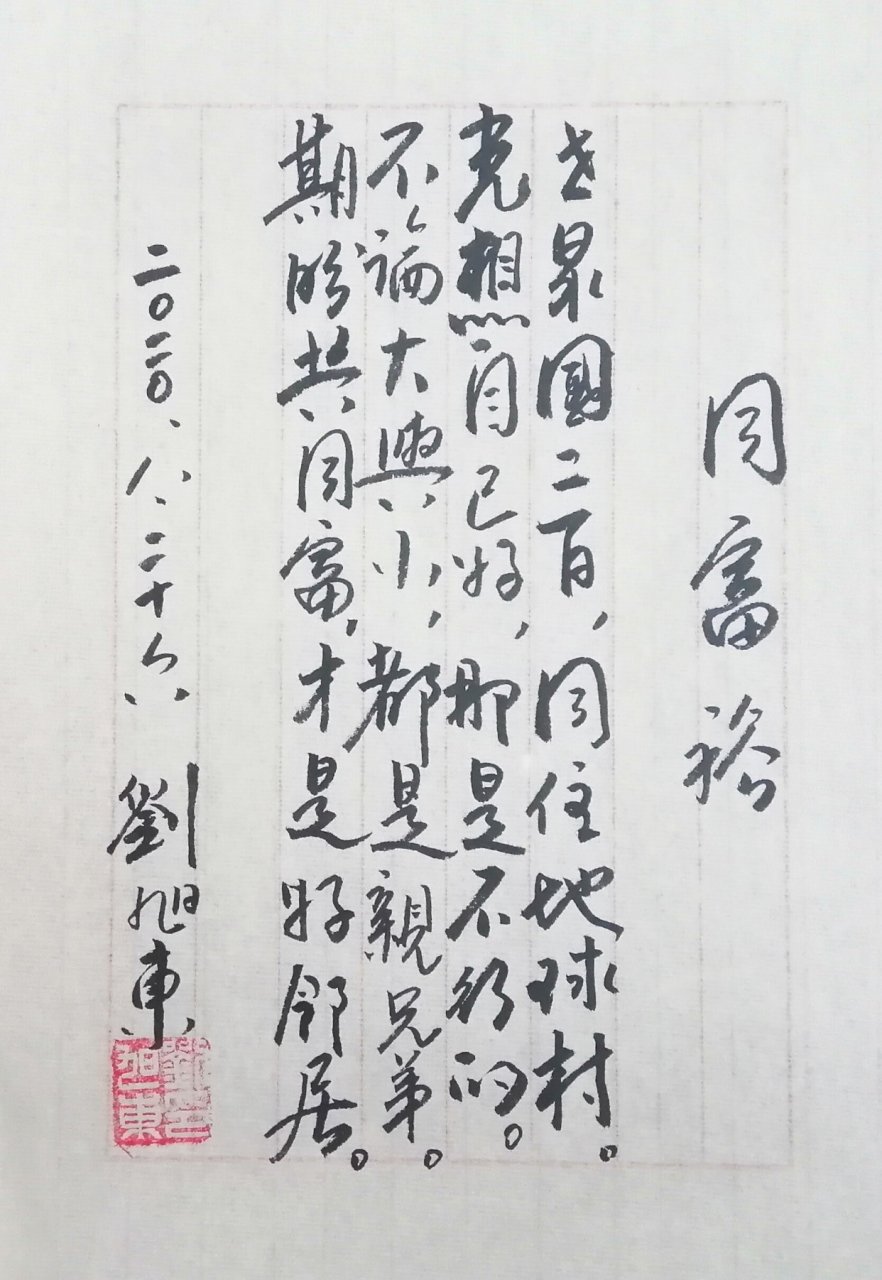 同富裕
世界國二百,同住地球村。
光想自己好,那是不行的。
不論大與小,都是親兄弟。
期盼共同富,才是好邻居。
二〇二〇、八、二十六 劉旭東